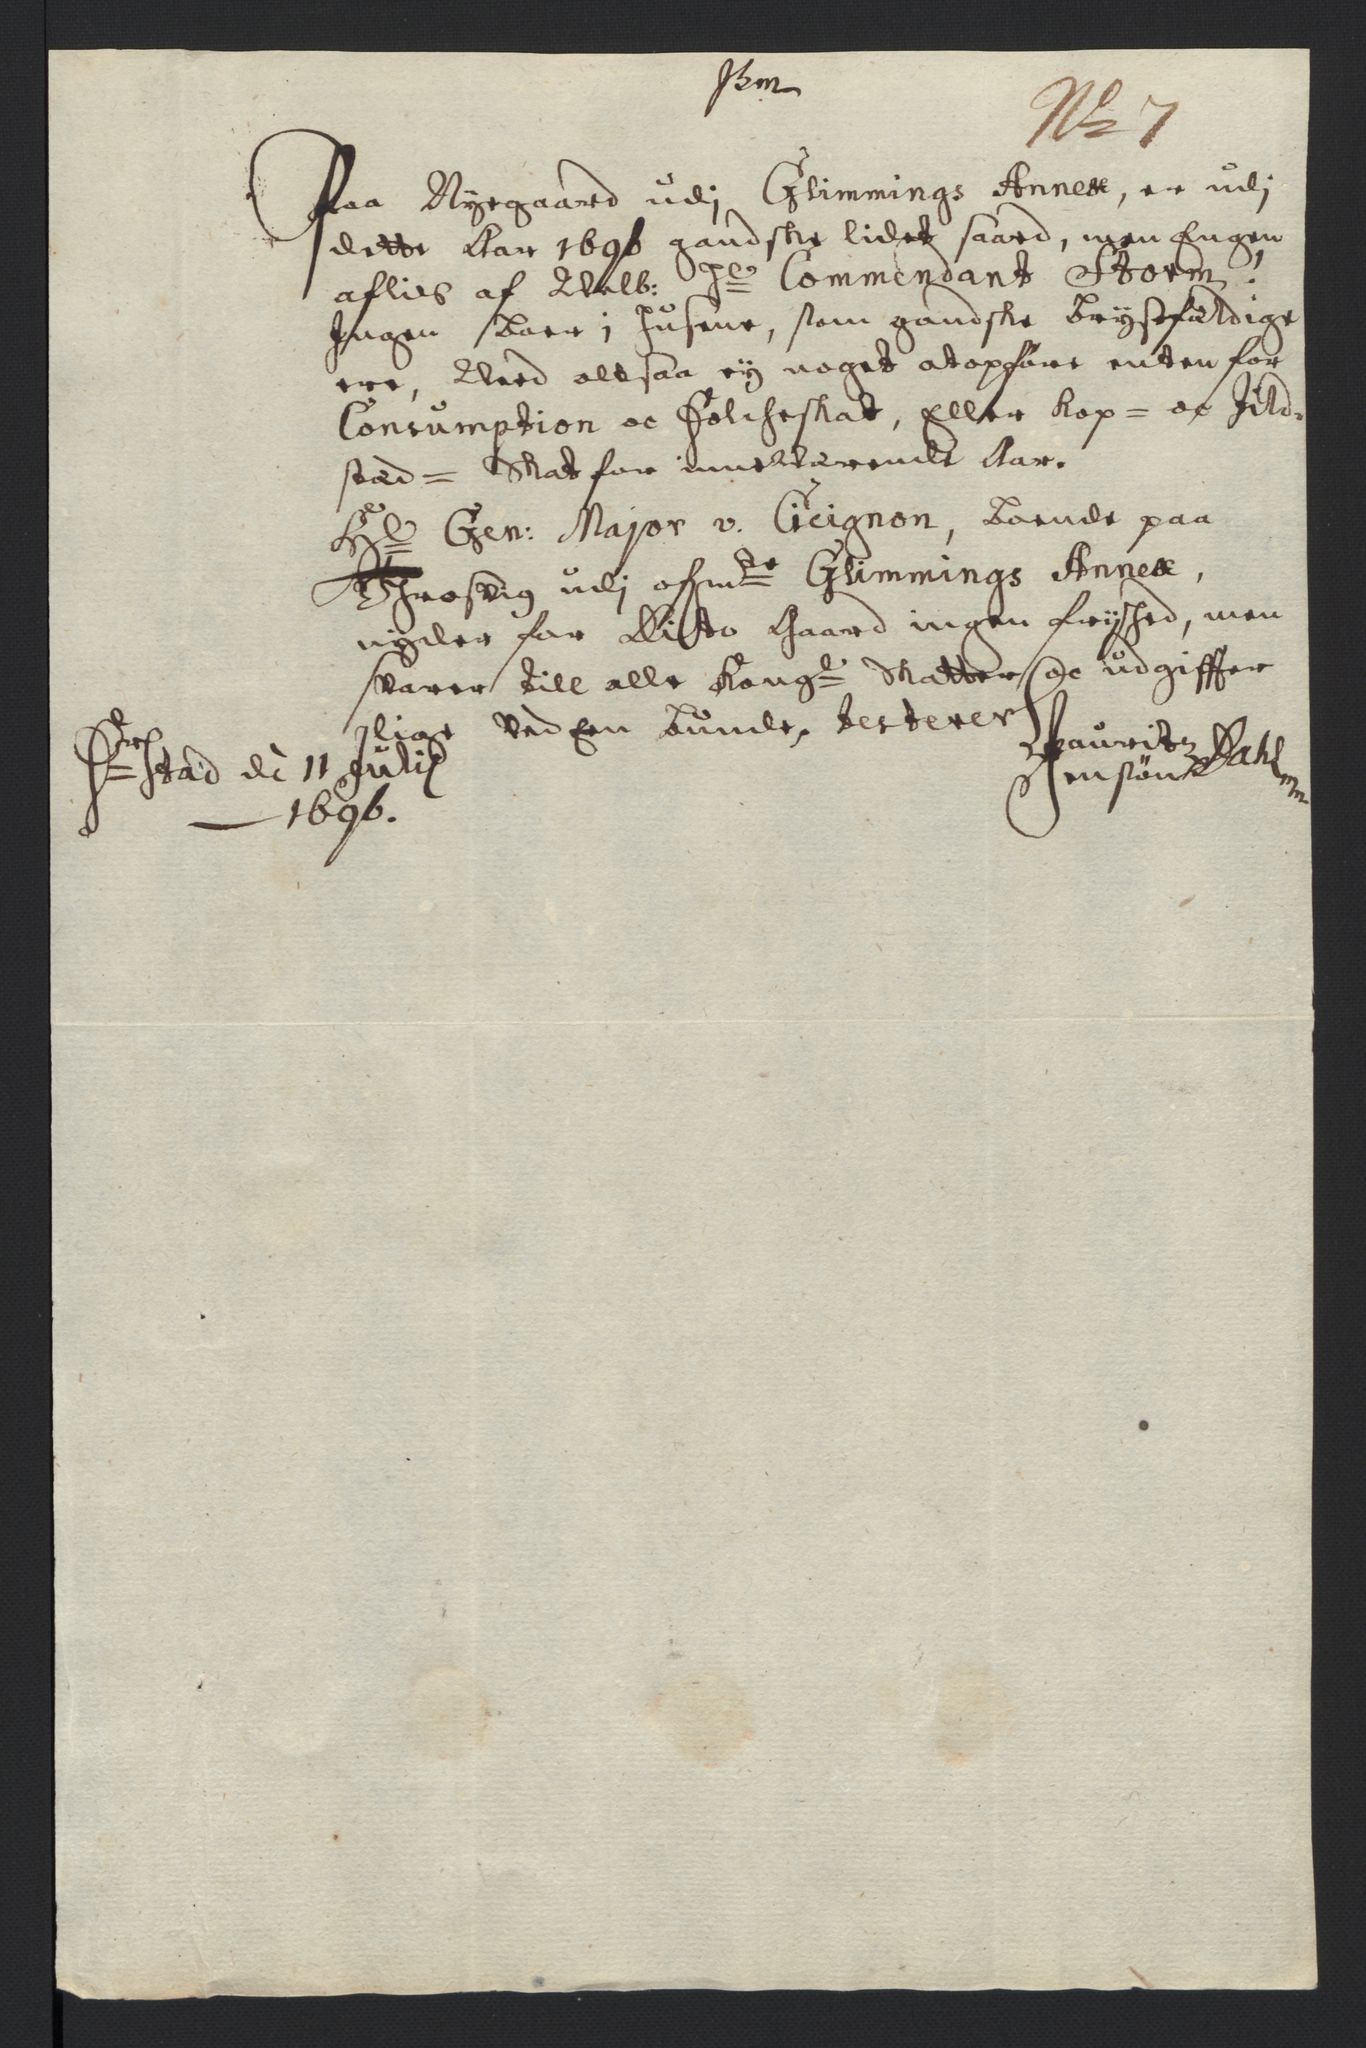 No 7
Paa Nyegaard udj Glimmings Annex, er udj
dette Aar 1696 gandske lidet saaed, men Engen
aflies af Welb: Hr Commendant Storm.
Ingen boer i Husene, som gandske brystfældige
ere, Veed altsaa ej noget at opføre enten for
Consumption oc Folcheskat, Eller Kop= oc Ild-
sted= Skat for inneWærende Aar.
Hr Gen: Major v. Cicignon, boende paa
Throsvig udj ofmte Glimmings Annex,
nyder for Ditto Gaard ingen frijhed, men
svarer till alle Kongl Skatter oc udgiffter
lige ved En bunde, testerer
Frstad de 11 Julij Lauritz
1696. Jensøn Dahl